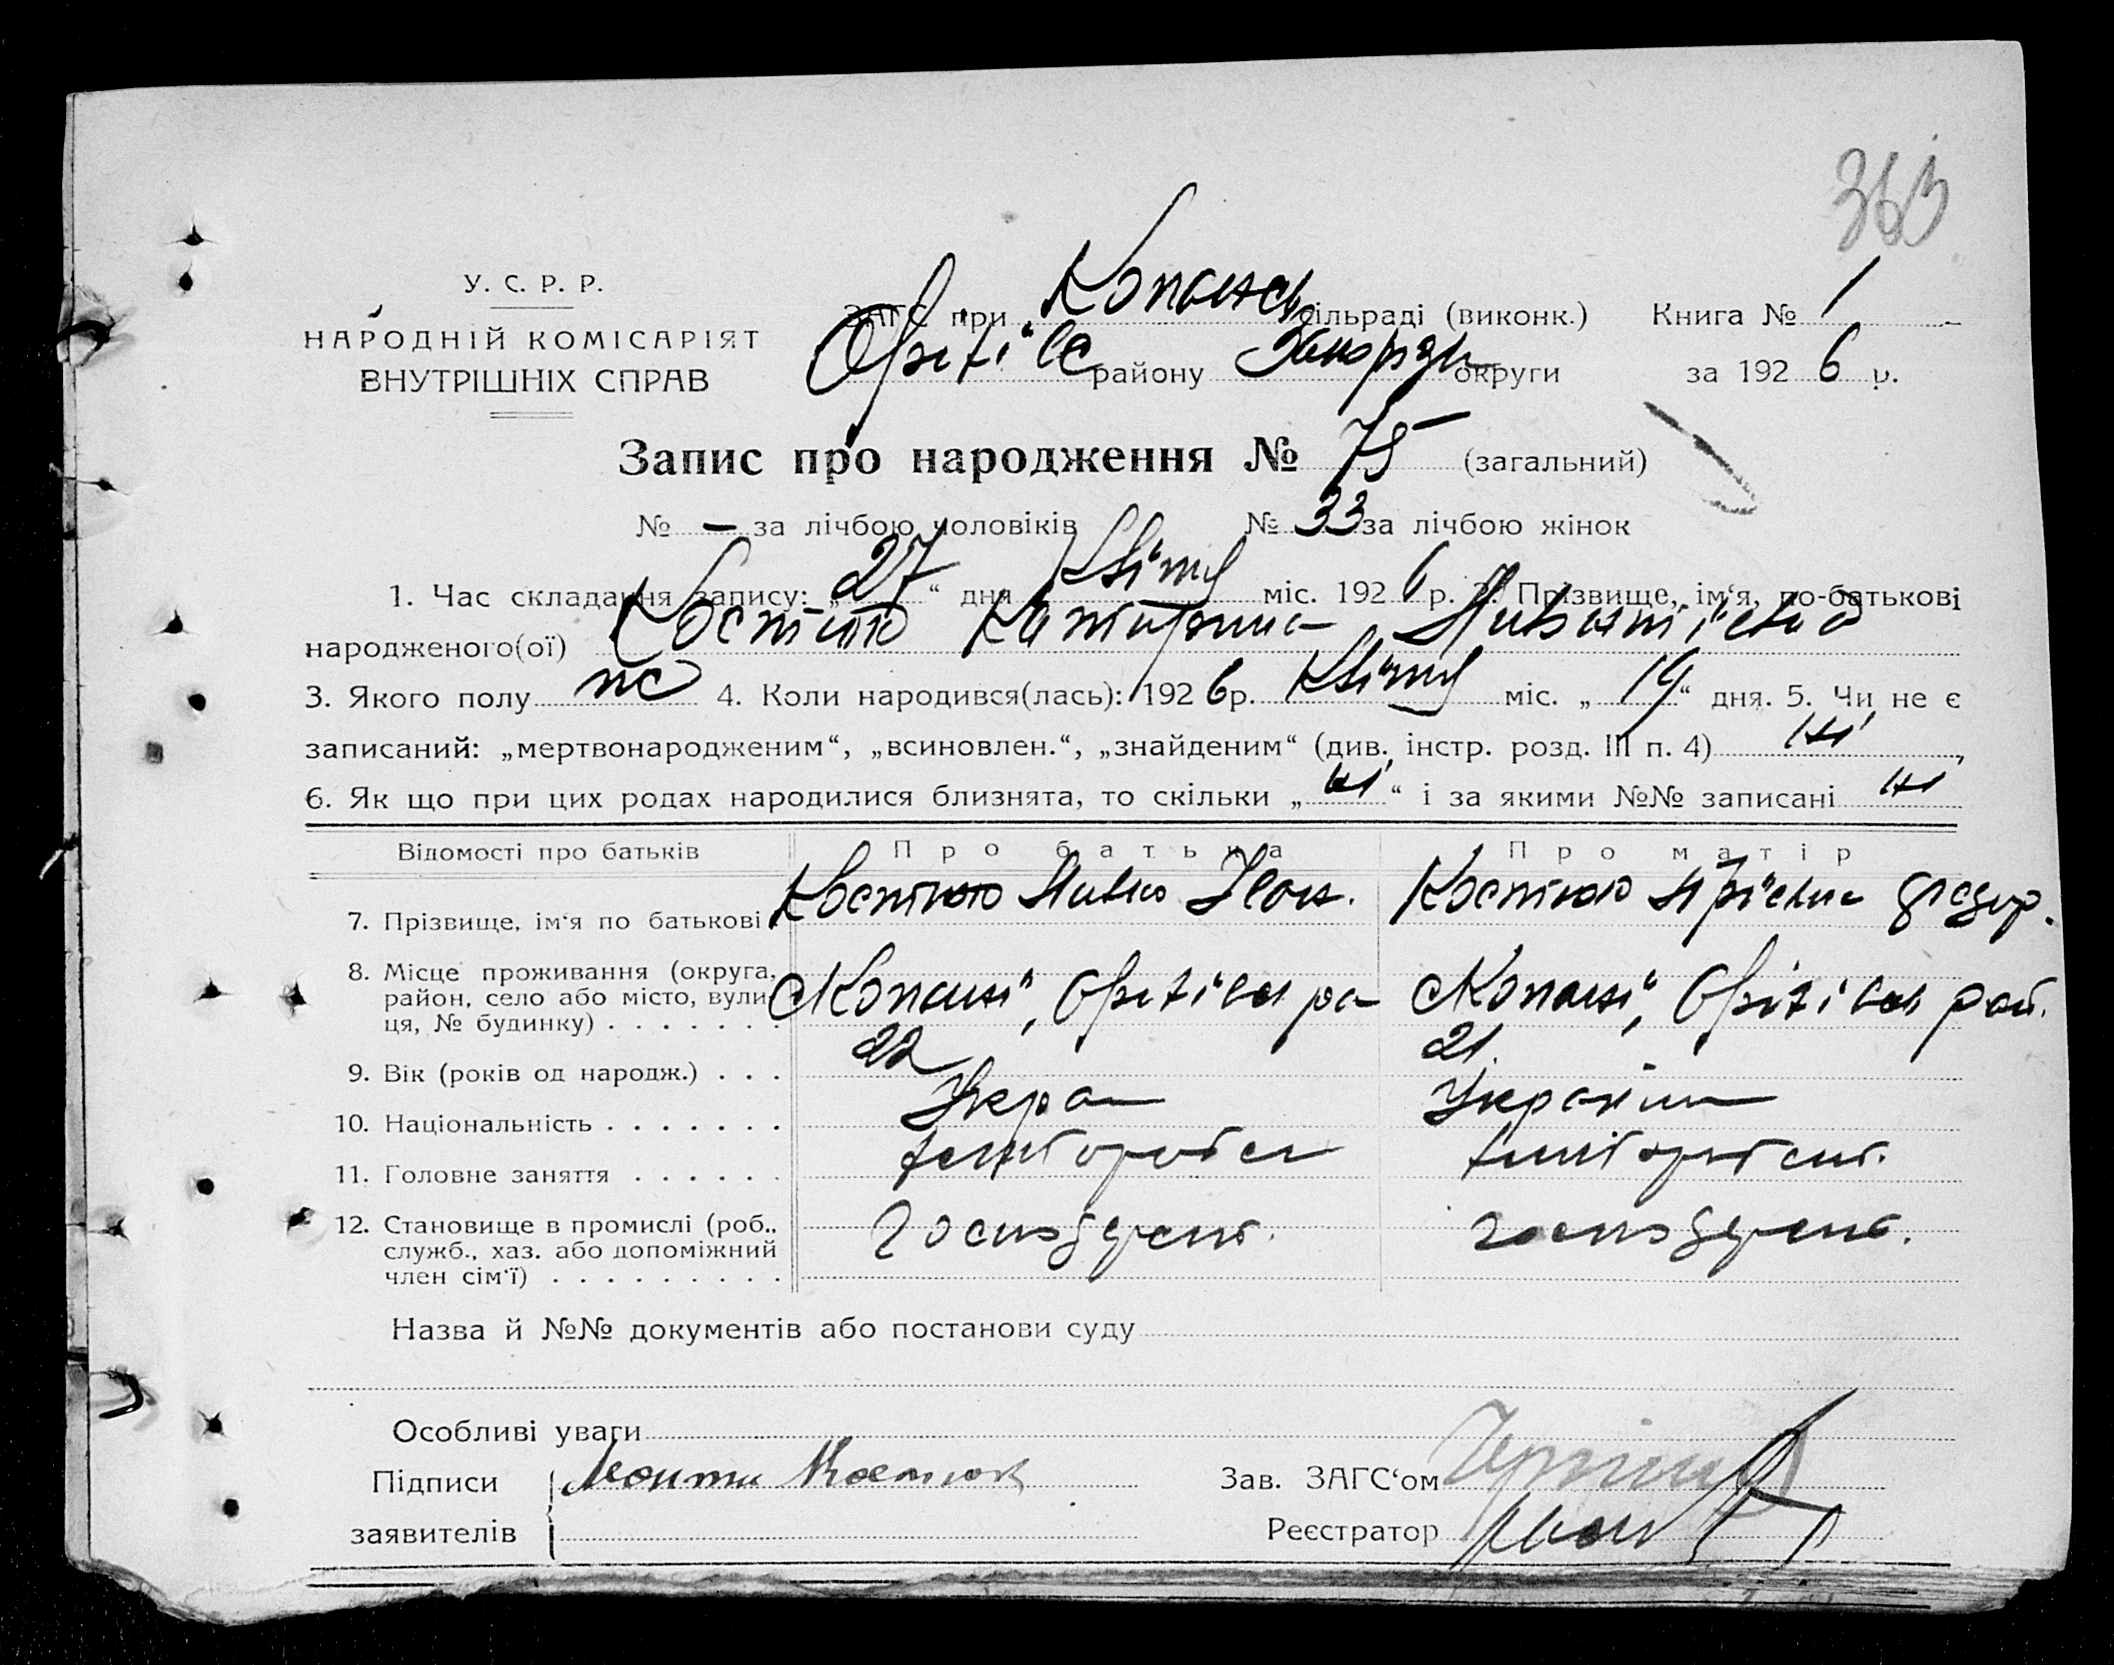 363
У. С. Р. Р.
НАРОДНІЙ КОМІСАРІЯТ
ВНУТРІШНІХ СПРАВ
ЗАГС при Копансь сільраді (виконк.) Книга № 1
Оріхівс району Запорізь округи за 1926 р.
Запис про народження № 75 (загальний)
№ — за лічбою чоловіків № 33 за лічбою жінок
1. Час складання запису: „27“ дня Квітня міс. 1926 р. 2. Прізвище, ім‘я, по-батькові
народженого(ої) Костюк Катирина
3. Якого полу жс 4. Коли народився(лась): 1926 р. Квітня міс. „19“ дня. 5. Чи не є
записаний: „мертвонародженим“, „всиновлен.“, „знайденим“ (див. інстр. розд. III п. 4) ні,
6. Як що при цих родах народилися близнята, то скільки „ні“ і за якими №№ записані ні
Відомості про батьків Про батька Про матір
7. Прізвище, ім‘я по батькові Костюк Костюк
8. Місце проживання (округа, район, село або місто, вулиця, № будинку) . . . . . . . с Копані, Оріхівсь ра с Копані, Оріхівсь рай.
9. Вік (років од народж.) . . . 22 21.
10. Національність . . . . . . . Укра Українк
11. Головне заняття . . . . . .
12. Становище в промислі (роб., служб., хаз. або допоміжний член сім‘ї) . . . . . . . . .
Назва й №№ документів або постанови суду
Особливі уваги
Підписи Костюк Зав. ЗАГС‘ом
заявителів Реєстратор